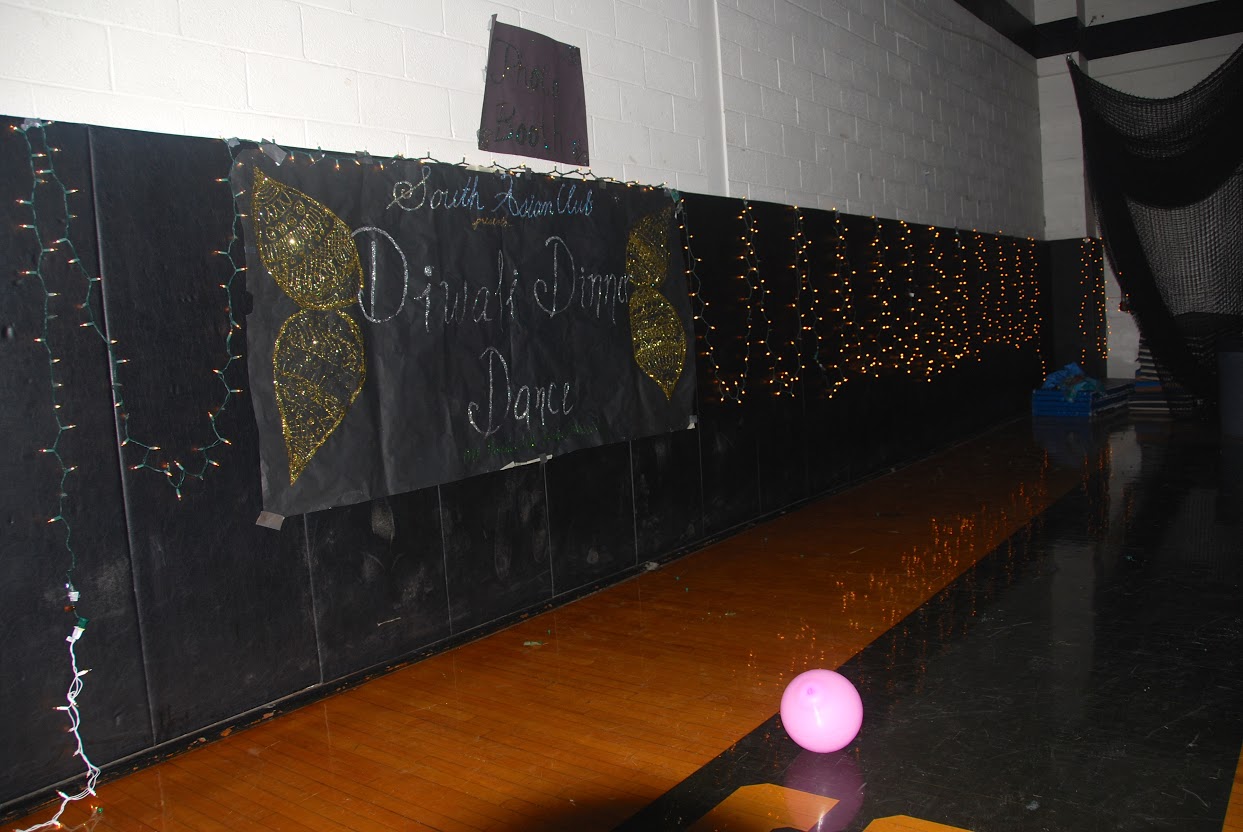 Photo
Booth
South Asian Club
presents
Diwali Dinna
Dance